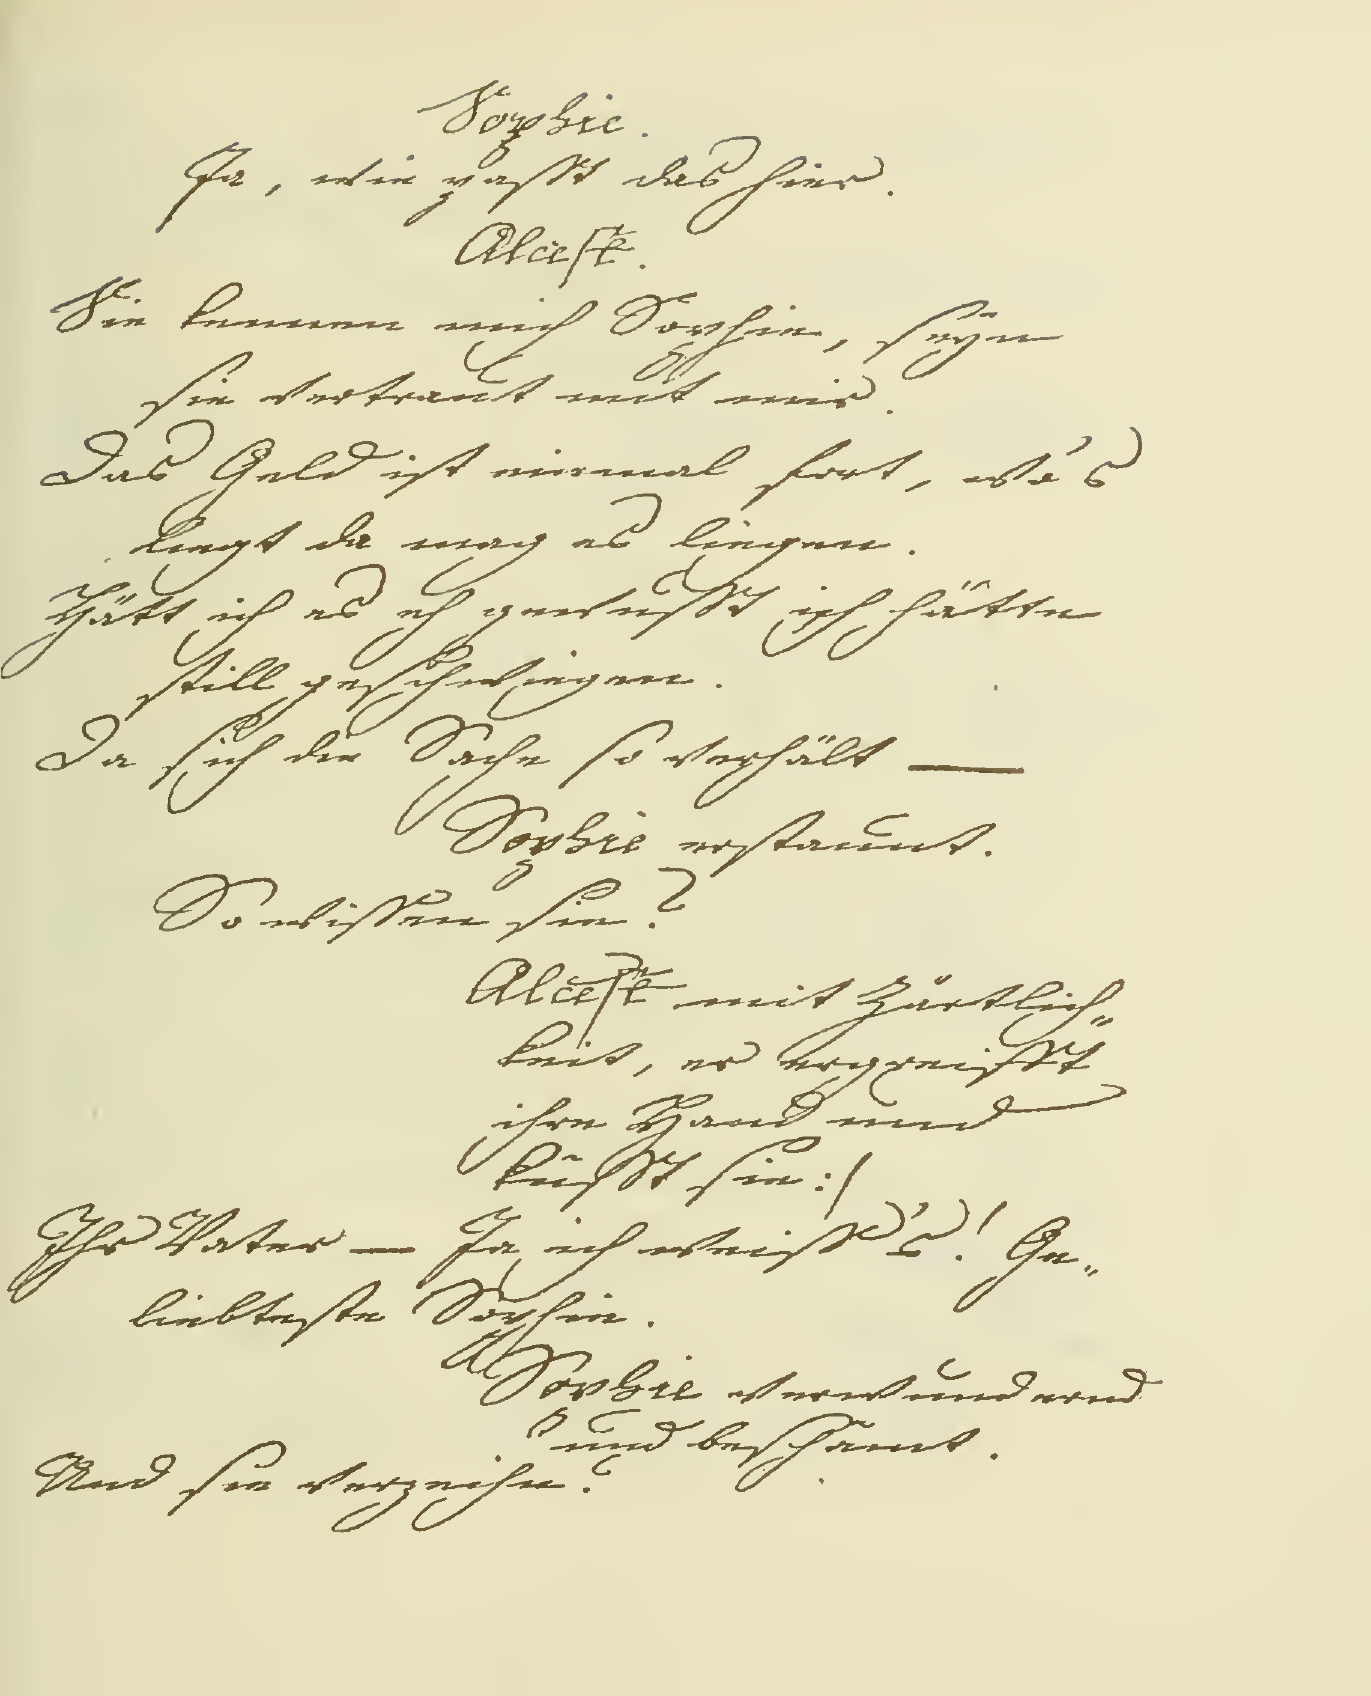 Sophie.
Ja, wie passt das hier.
Alceste.
Sie kennen mich Sophie, seyn
sie vertraut mit mir.
Das Geld ist einmal fort, wo's
liegt da mag es liegen.
Hätt ich es eh gewusst ich hätte
still geschwiegen.
Da sich die Sache so verhält —
Sophie erstaunt.
So wissen sie?
Alceste mit Zärtlich„
keit, er ergreifft
ihre Hand und
küsst sie :/
Ihr Vater — Ja ich weiss's! Ge„
liebteste Sophie.
Sophie verwundernd
und beschämt.
Und sie verzeihn?